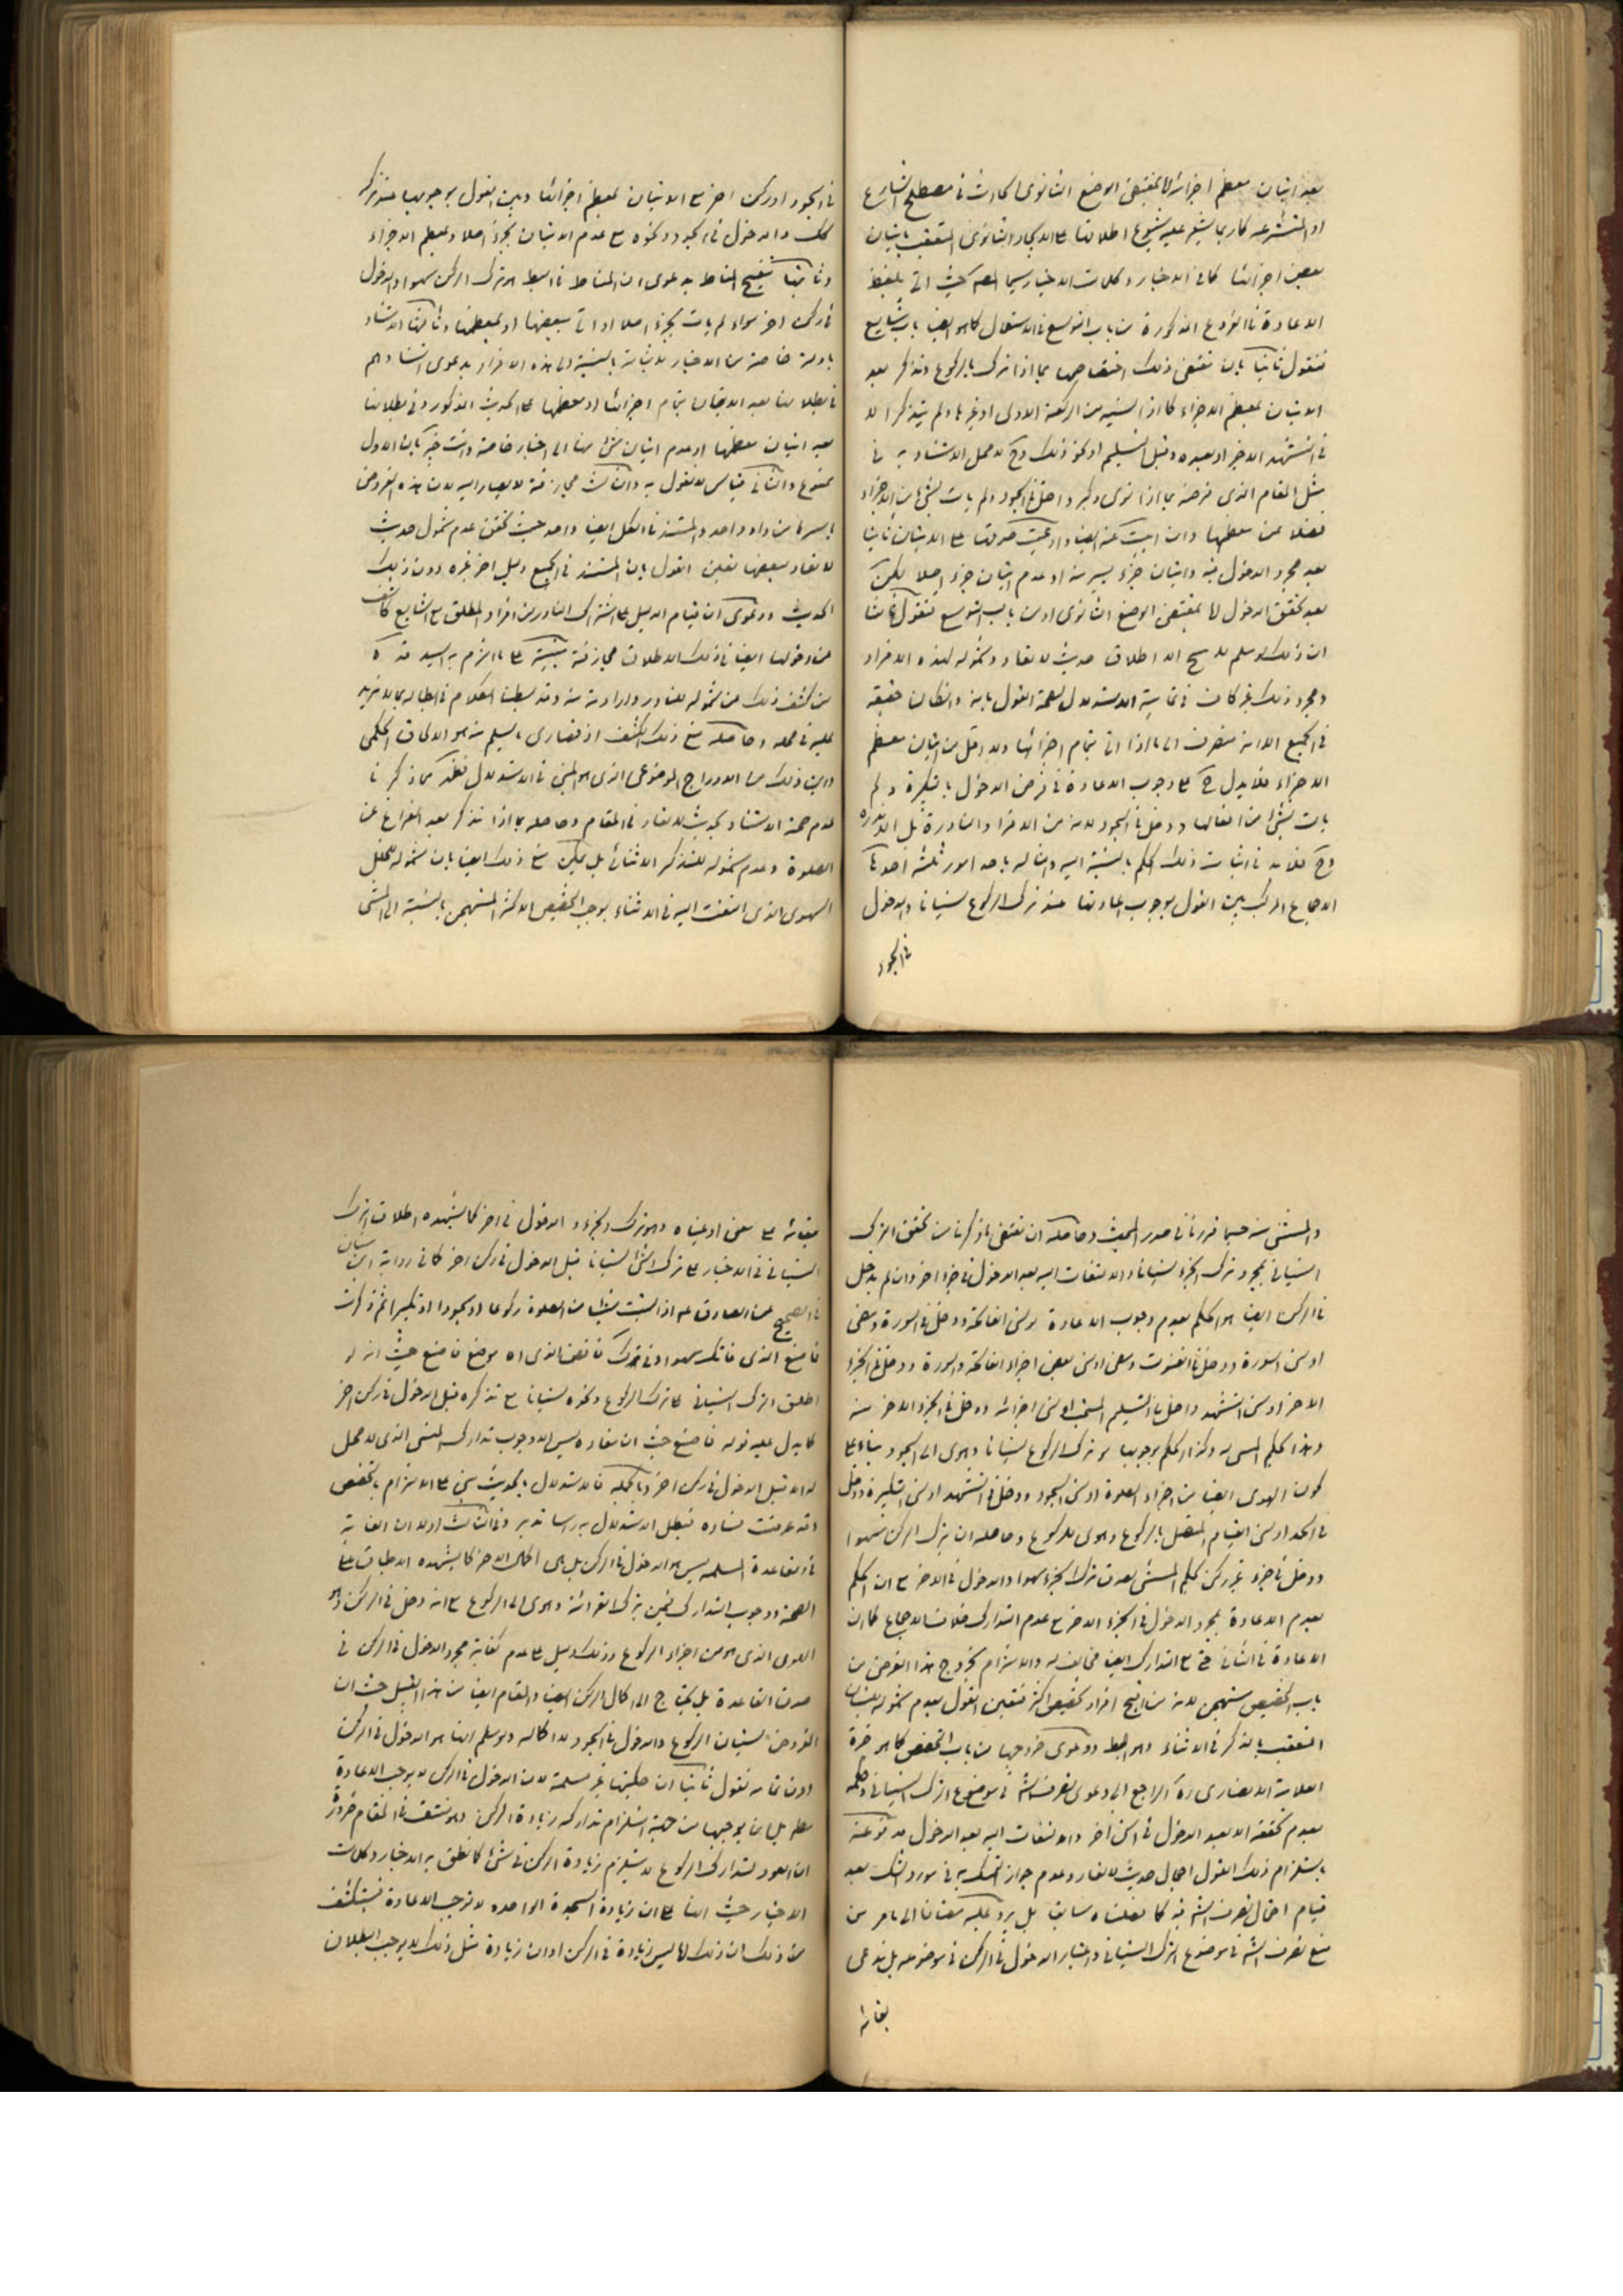 بعد اتيان معظم اجزائها بمقتضى الوضع الثانوى الحادث فى مصطلح الشارع
او المتشرعه كما ربما يشعر عليه شيوع اطلاقها على الايجاد الثانوى المتعقب باتيان
بعض اجزائها كما فى الاخبار وكلمات الاخيار سيما المصـ حيث اتى بلفظ
الاعادة فى الفروع المذكورة من باب التوسع فى الاستعمال كما هو ايضا باب شايع
فنقول ثانيا بان مقتضى ذلك اختصاصها بما اذا ترك الركوع وتذكر بعد
الاتيان بمعظم الاجزاء كما اذا نسيه من الركعة الاولى او غيرها ولم يتذكر الا
فى التشهد الاخير او بعده وقبل التسليم او نحو ذلك وح لا محل للاستناد به فى
مثل المقام الذى فرضه بما اذا نوى وكبر ودخل فى السجود ولم يات بشئ من الاجزاء
فضلا عن معظمها وان ابيت عنه ايضا وادعيت صدقها على الاتيان ثانيا
بعد مجرد الدخول فيه واتيان جزء يسير منه او عدم اتيان جزء اصلا لكن
بعد تحقق الدخول اما بمقتضى الوضع الثانوى او من باب التوسع فنقول ثالثا
ان ذلك لو سلم لا يصحح الا اطلاق حديث لا تعاد وشموله لهذه الافراد
ومجرد ذلك غير كاف فى تمامية الاستدلال لصحة القول بانه وان كان حقيقة
فى الجميع الا انه منصرف الى ما اذا اتى بتمام اجزائها ولا اقل من اتيان معظم
الاجزاء فلا يدل ح على وجوب الاعادة فى فرض الدخول بالتكبيرة ولم
يات بشئ من افعالها ودخل فى السجود لانه من الافراد النادرة بل الاندره
وح فلا بد فى اثبات ذلك الحكم بالنسبة اليه وامثاله باحد امور ثلثة احدها
الاجماع المركب بين القول بوجوب اعادتها عند ترك الركوع نسيانا والدخول
فى السجود
فى السجود او ركن اخر مع الاتيان بمعظم اجزائها وبين القول بوجوبها عند ترك
كك والدخول فى السجود ونحوه مع عدم الاتيان بجزء اصلا ولمعظم الاجزاء
وثانيها تنقيح المناط بدعوى ان المناط فى البط هو ترك الركن سهوا والدخول
فى ركن اخر سواء لم يات بجزء اصلا او اتى ببعضها او بمعظمها وثالثها الاستناد
بادلة خاصة من الاخبار الاثباتية بالنسبة الى هذه الافراد بدعوى استنادهم
فى بطلانها بعد الاتيان بتمام اجزائها او معظمها على الحديث المذكور وفى بطلانها
بعد اتيان معظمها او عدم اتيان شئ منها الى اخبار خاصة وانت خبير بان الاول
ممنوع والثانى قياس لا نقول به والثالث مجازفة لا يصار اليه لان هذه الفروض
باسرها من واد واحد والمستند فى الكل ايضا واحد حيث تحقق عدم شمول حديث
لا تعاد لبعضها تعين القول بان المستند فى الجميع دليل اخر غيره دون ذلك
الحديث ودعوى ان قيام الدليل على اشتراك النادر من افراد المطلق مع الشايع كاشف
عن دخولها ايضا فى ذلك الاطلاق مجازفة مبنية على ما التزم به السيد قده
من كشف ذلك عن شموله للنادر وارادته منه وقد بسطنا الكلام فى ابطاله بما لا مزيد
عليه فى محله وحاصله منع ذلك الكشف اذ قصارى ما يسلم منه هو الالحاق الحكمى
واين ذلك من الاندراج الموضوعى الذى هو المبنى فى الاستدلال فظهر مما ذكرنا
عدم صحة الاستناد بحديث لا تعاد فى المقام وحاصله بما اذا تذكر بعد الفراغ عن
الصلوة وعدم شموله للتذكر الاثنائى بل يمكن منع ذلك ايضا بان شموله للخلل
السهوى الذى التفت اليه فى الاثناء يوجب التخصيص الاكثر المستهجن بالنسبة الى المستثنى
والمستثنى منه حسبما قررنا فى صدر المبحث وحاصله ان مقتضى ما ذكرنا من تحقق الترك
النسيانى بمجرد ترك الجزء نسيانا والالتفات اليه بعد الدخول فى جزء اخر وان لم يدخل
فى الركن ايضا هو الحكم بعدم وجوب الاعادة لو نسى الفاتحة ودخل فى السورة ومضى
او نسى السورة ودخل فى القنوت ومضى او نسى بعض اجزاء الفاتحة والسورة ودخل فى الجزء
الاخر او نسى التشهد ودخل فى التسليم المستحب او نسى اجزائه ودخل فى الجزء الاخر منه
وهذا الحكم المسى به وكذا الحكم بوجوبها لو ترك الركوع نسيانا وهوى الى السجود بناء على
كون الهوى ايضا من اجزاء الصلوة او نسى السجود ودخل فى التشهد او نسى التكبيرة ودخل
فى الحمد او نسى القيام المتصل بالركوع وهوى للركوع وحاصله ان ترك الركن سهوا
ودخل فى جزء غير ركن كحكم المستثنى يصدق ترك الجزء سهوا والدخول فى الاخر مع ان الحكم
بعدم الاعادة بمجرد الدخول فى الجزء الاخر مع عدم التدارك خلاف الاجماع كما ان
الاعادة فى الثانى حتى مع التدارك ايضا مخالف له والالتزام بخروج هذا الفرض من
باب التخصيص مستهجن لانه من اقبح افراد تخصيص الاكثر فتعين القول بعدم شموله للنسيان
المتعقب بالتذكر فى الاثناء وهو المط ودعوى خروجها من باب التخصص كما هو خيرة
العلامة الانصارى ره الراجع الى دعوى تصرف الشـ فى موضوع الترك النسيانى وحكمه
بعدم تحققه الا بعد الدخول فى ركن اخر والالتفات اليه بعد الدخول مدفوعة
باستلزام ذلك القول اجمال حديث لا تعاد وعدم جواز التمسك به فى مورد الشك بعد
قيام احتمال تصرف الشـ فيه كما فصلناه سابقا بل يرد عليه مضافا الى ما مر من
منع تصرف الشـ فى موضوع الترك النسيانى واعتبار الدخول فى الركن فى موضوعه بل ندعى
بقائه
بقائه على معنى اوعيناه وهو ترك الجزء والدخول فى اخر كما يشهده اطلاق الترك
النسيانى فى الاخبار على ترك الشئ نسيانا قبل الدخول فى ركن اخر كما فى رواية ابن سنان
فى الصحيح عن الصادق عـ اذا نسيت شيئا من الصلوة ركوعا او سجودا او تكبيرا ثم ذكرت
فاصنع الذى فاتك سهوا
اطلق الترك النسيانى على ترك الركوع ونحوه نسيانا مع تذكره قبل الدخول فى ركن اخر
كما يدل عليه قوله فاصنع حيث ان مفاده ليس الا وجوب تدارك المنسى الذى لا محل
له الا قبل الدخول فى ركن اخر وبالجملة فالاستدلال بالحديث مبنى على الالتزام بالتخصص
وقد عرفت فساده فبطل الاستدلال به راسا تدبر وفى الثالث اولا ان الغاية
فى القاعدة المسلمه ليس هو الدخول فى الركن بل هى اكمال الاخر كما يشهده الاطباق على
الصحة ووجوب التدارك فيمن ترك القرائة وهوى الى الركوع مع انه دخل فى الركن وهو
الهوى الذى هو من اجزاء الركوع وذلك دليل على عدم كفاية مجرد الدخول فى الركن فى
صدق القاعدة بل يحتاج الى اكمال الركن ايضا والمقام ايضا من هذا القبيل حيث ان
الفرض نسيان الركوع والدخول فى السجود لا اكماله ولو سلم انها هو الدخول فى الركن
دون تمامه نقول ثانيا ان كليتها غير مسلمة لان الدخول فى الركن لا يوجب الاعادة
مطـ بل انما يوجبها من جهة استلزام تداركه زيادة الركن وهو منتف فى المقام ضرورة
ان العود لتدارك الركوع لا يستلزم زيادة الركن فى شئ كما نطق به الاخبار وكلمات
الاخيار حيث انها على ان زيادة السجدة الواحده لا توجب الاعادة فيستكشف
من ذلك ان ذلك اما ليس زيادة فى الركن او ان زيادة مثل ذلك لا يوجب البطلان